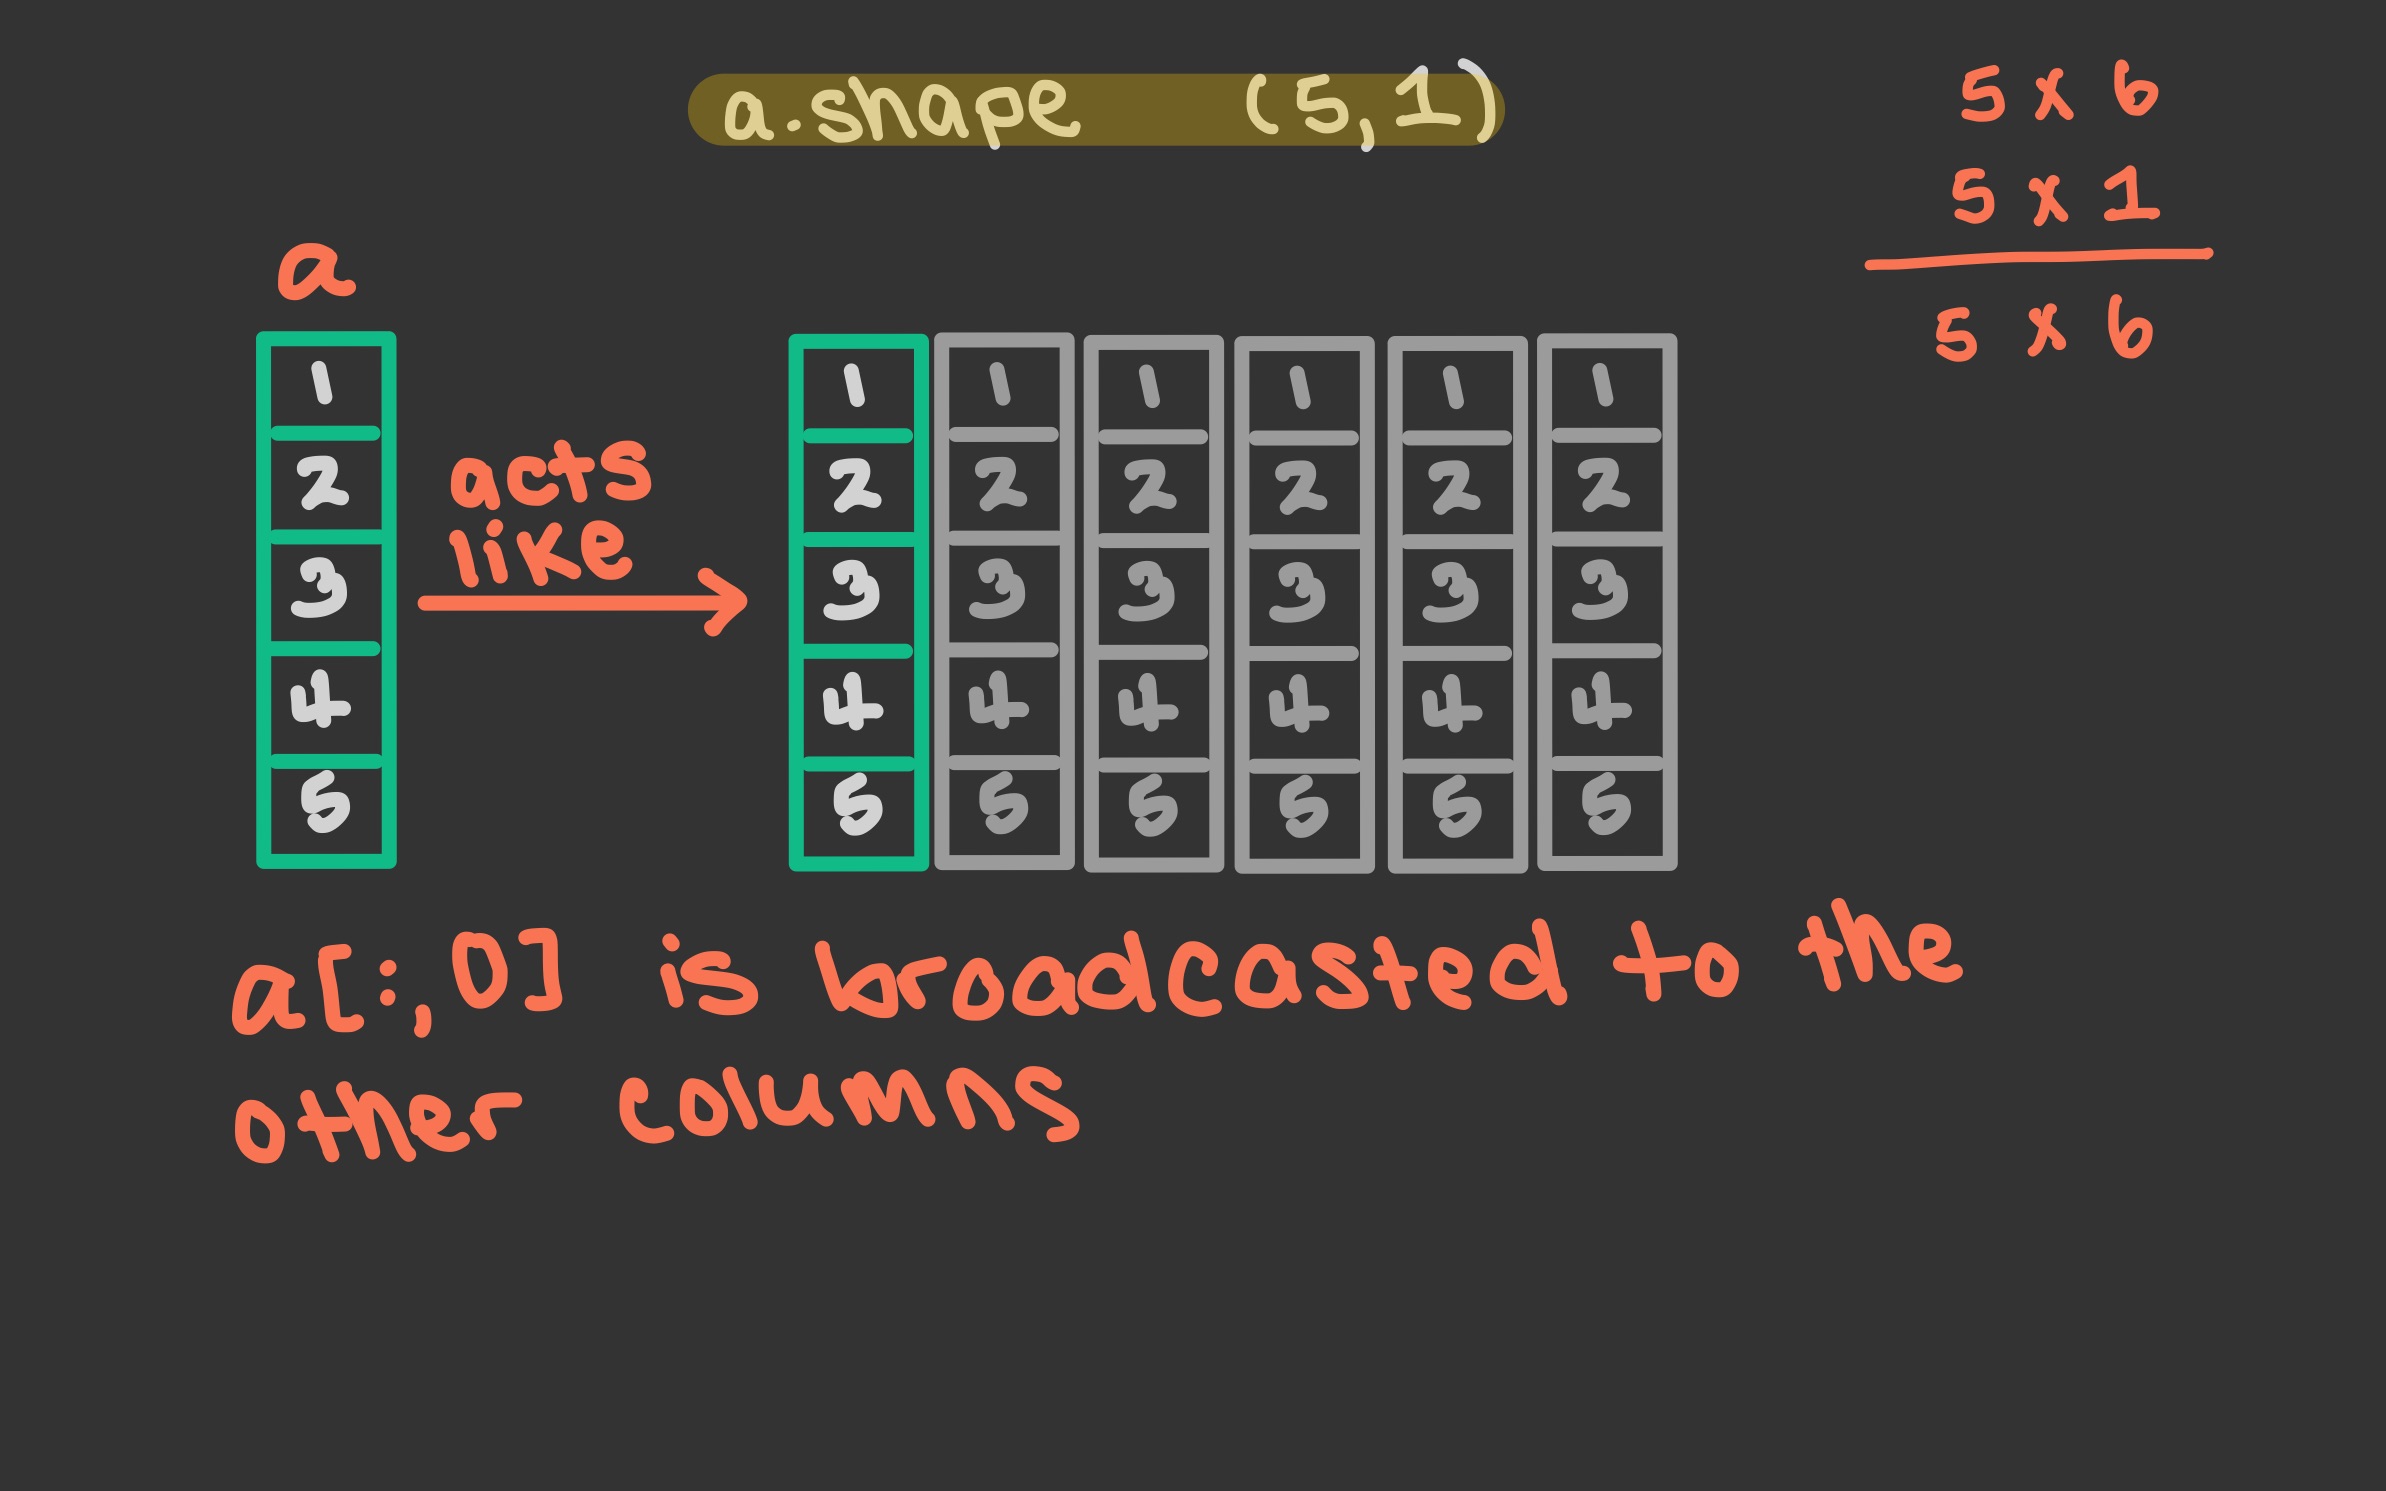 a.shape (5,1)
5 x 6
5 x 1
5 x 6
a
1
2
3
4
5
acts
like
1 1 1 1 1 1
2 2 2 2 2 2
3 3 3 3 3 3
4 4 4 4 4 4
5 5 5 5 5 5
a[:,0] is broadcasted to the
other columns